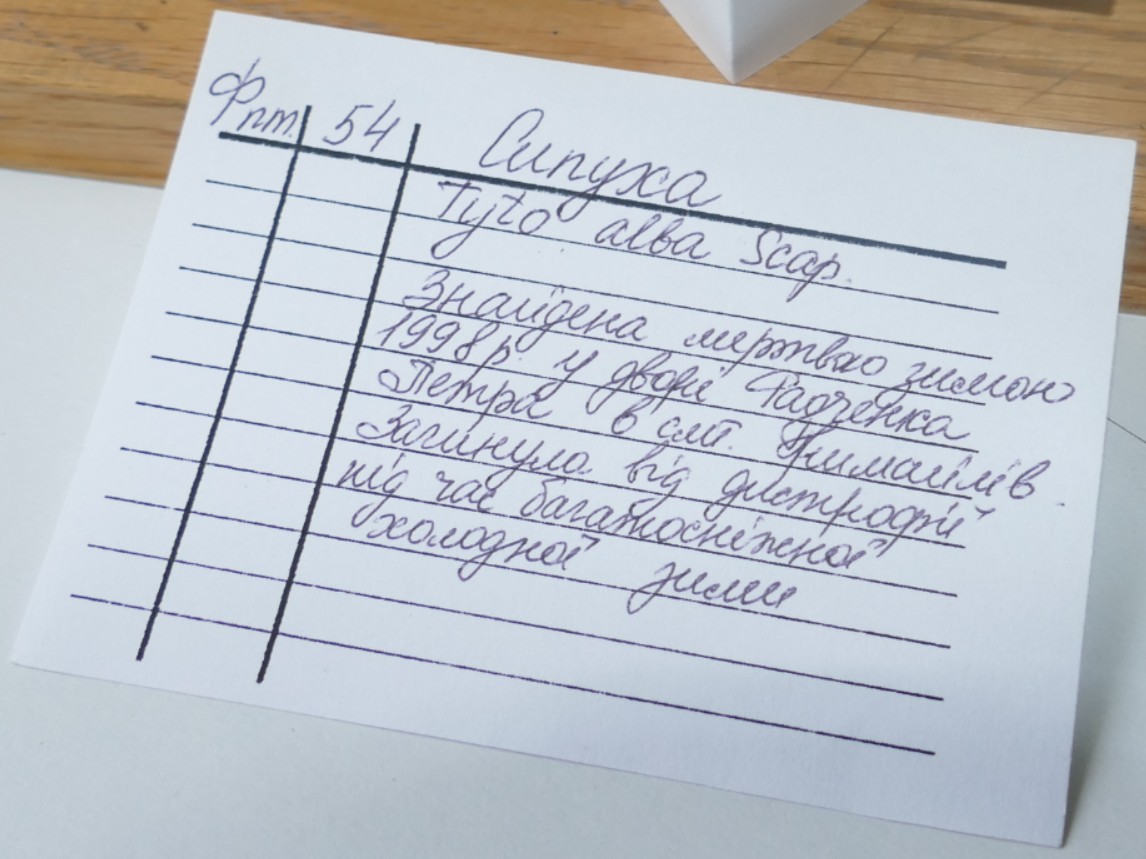 Фпт. 54 Сипуха
Tyto alba Scop.
Знайдена мертвою зимою
1998р. у дворі Радченка
Петра в смт. Гримайлів.
Загинула від дистрофії
під час багатосніжної
холодної зими